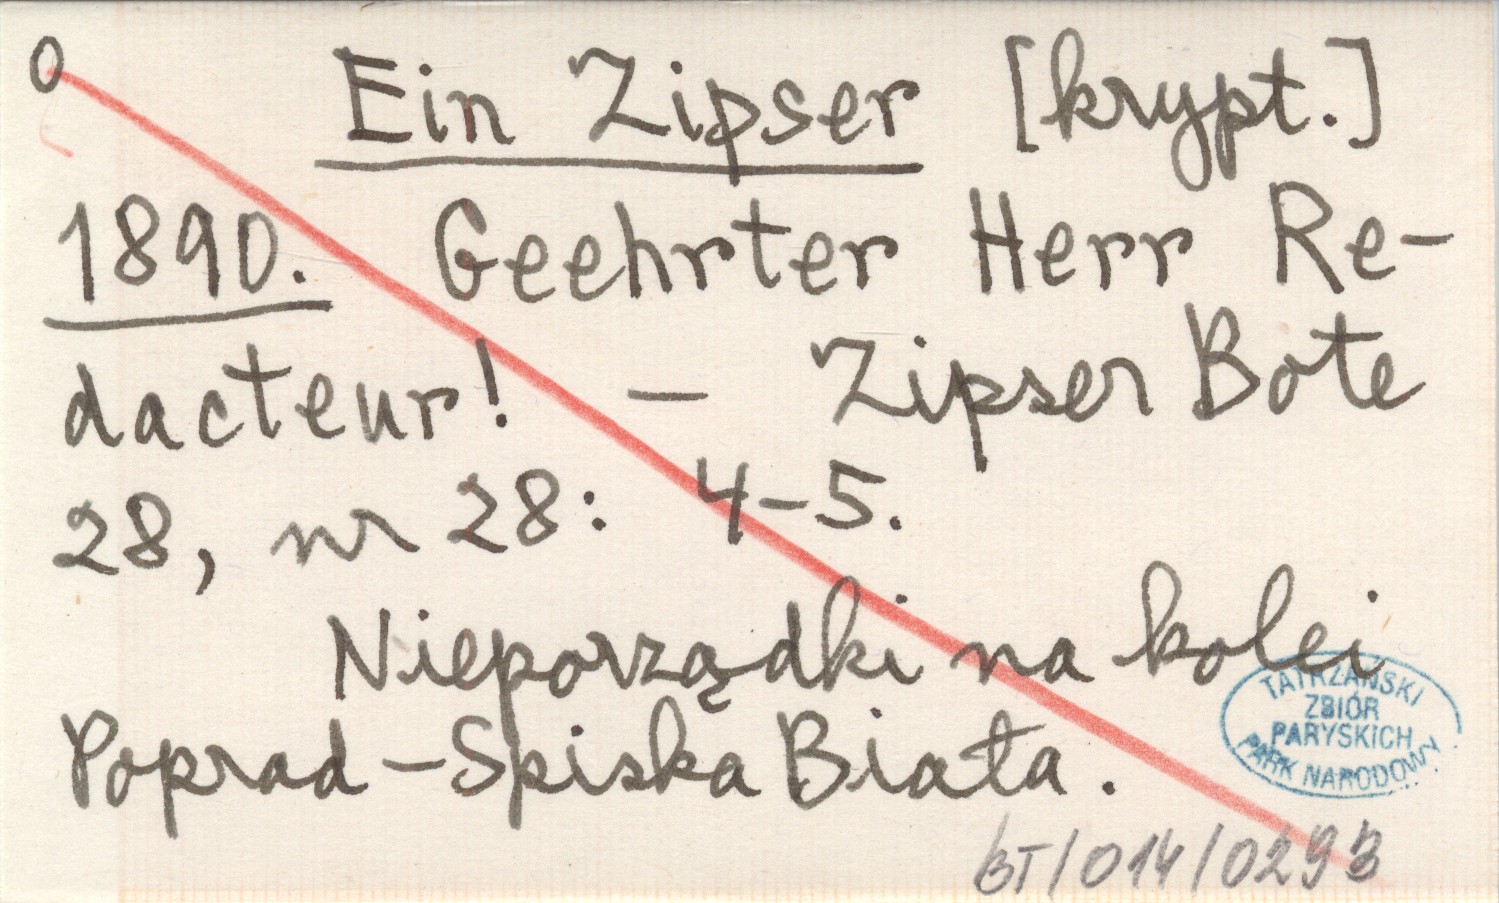 0 Ein Zipser [krypt.]
1890. Geehrter Herr Re-
dacteur! – Zipser Bote
28, nr 28: 4-5.
Nieporządki na kolei
Poprad-Spiska Biała.
TATRZAŃSKI
ZBIÓR
PARYSKICH
PARK NARODOWY
BT/014/0293